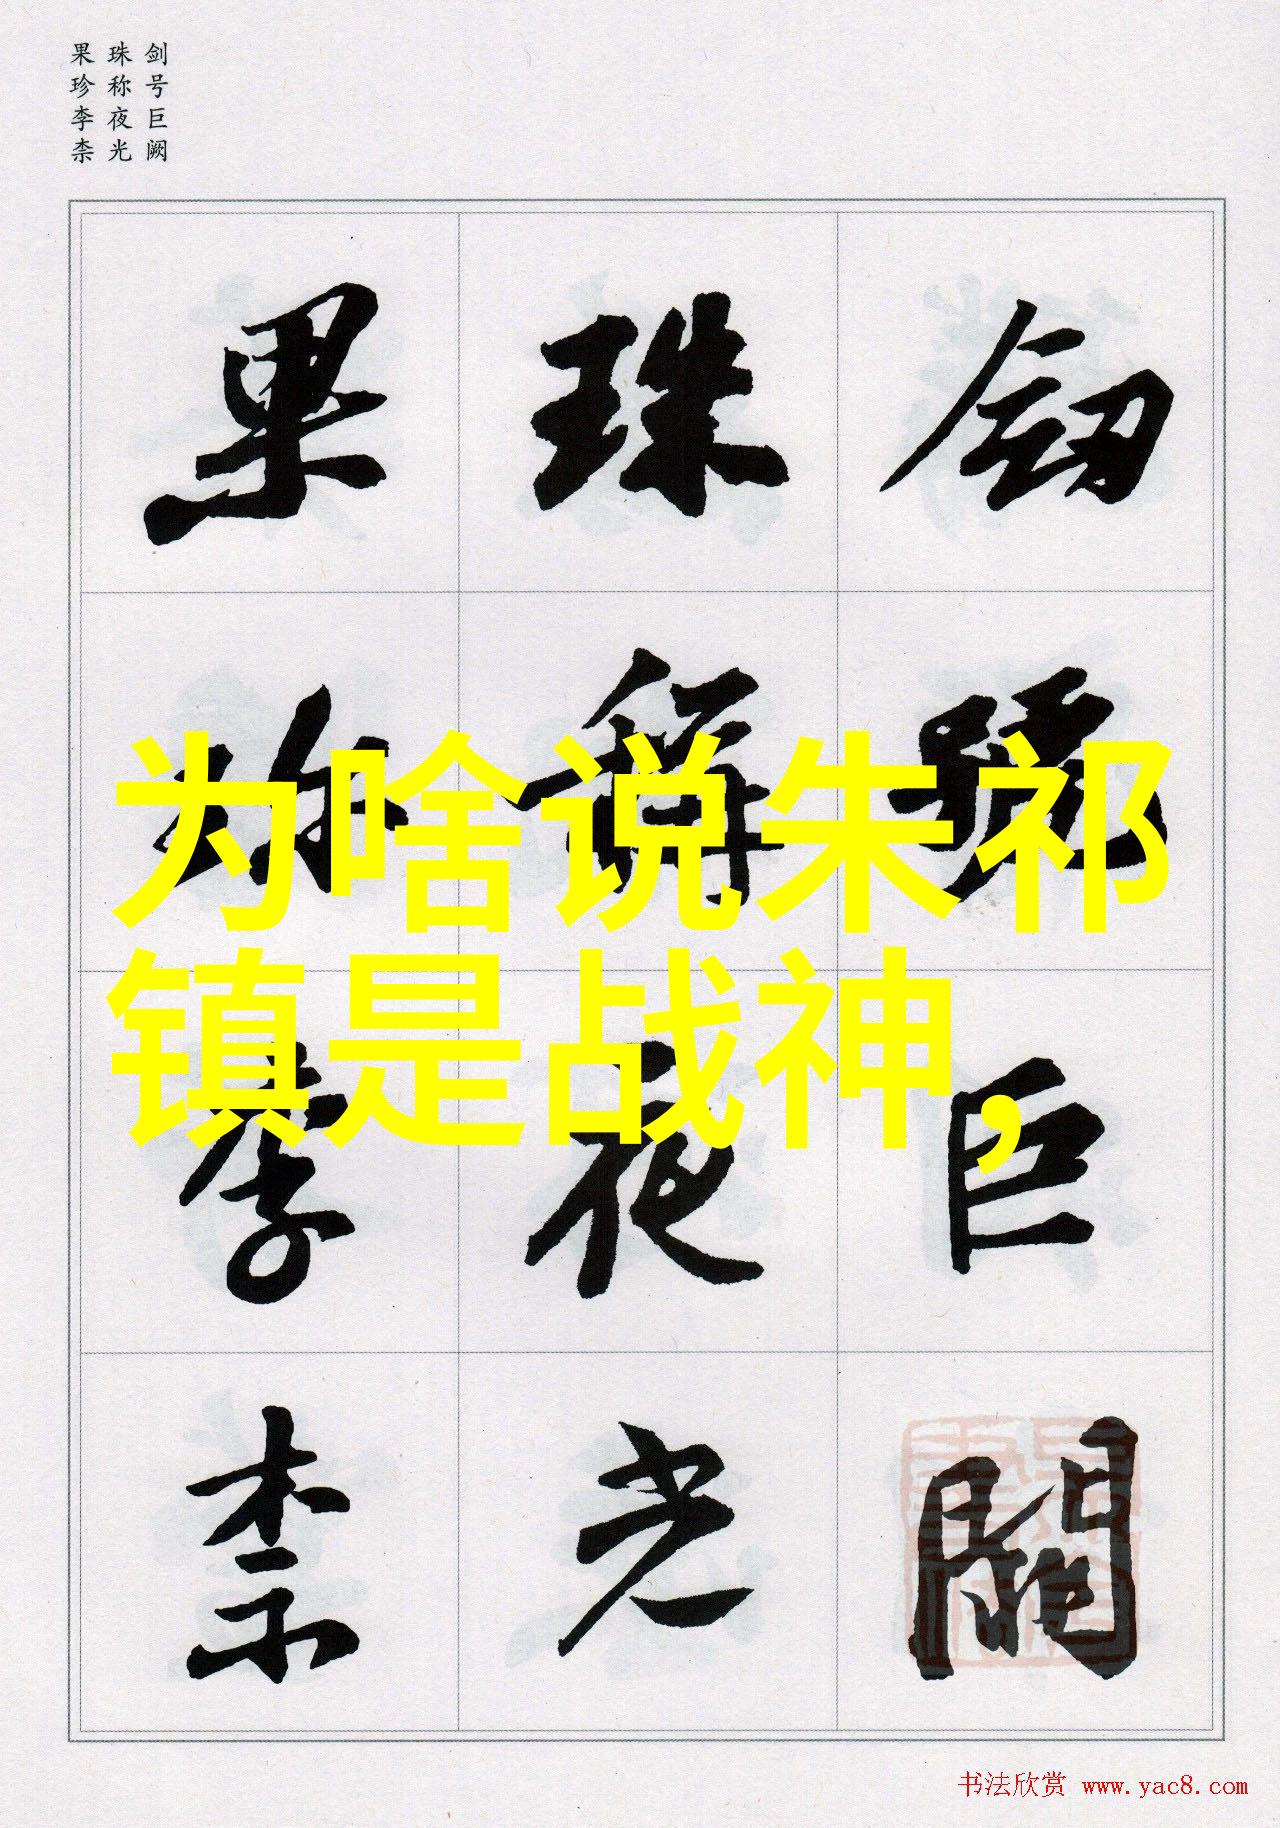 剑号巨阙
珠称夜光
果珍李柰
劒 號 巨 闕
珠 稱 夜 光
果 珍 李 柰
为啥说朱祁
镇是战神，
书法欣赏 www.yac8.com